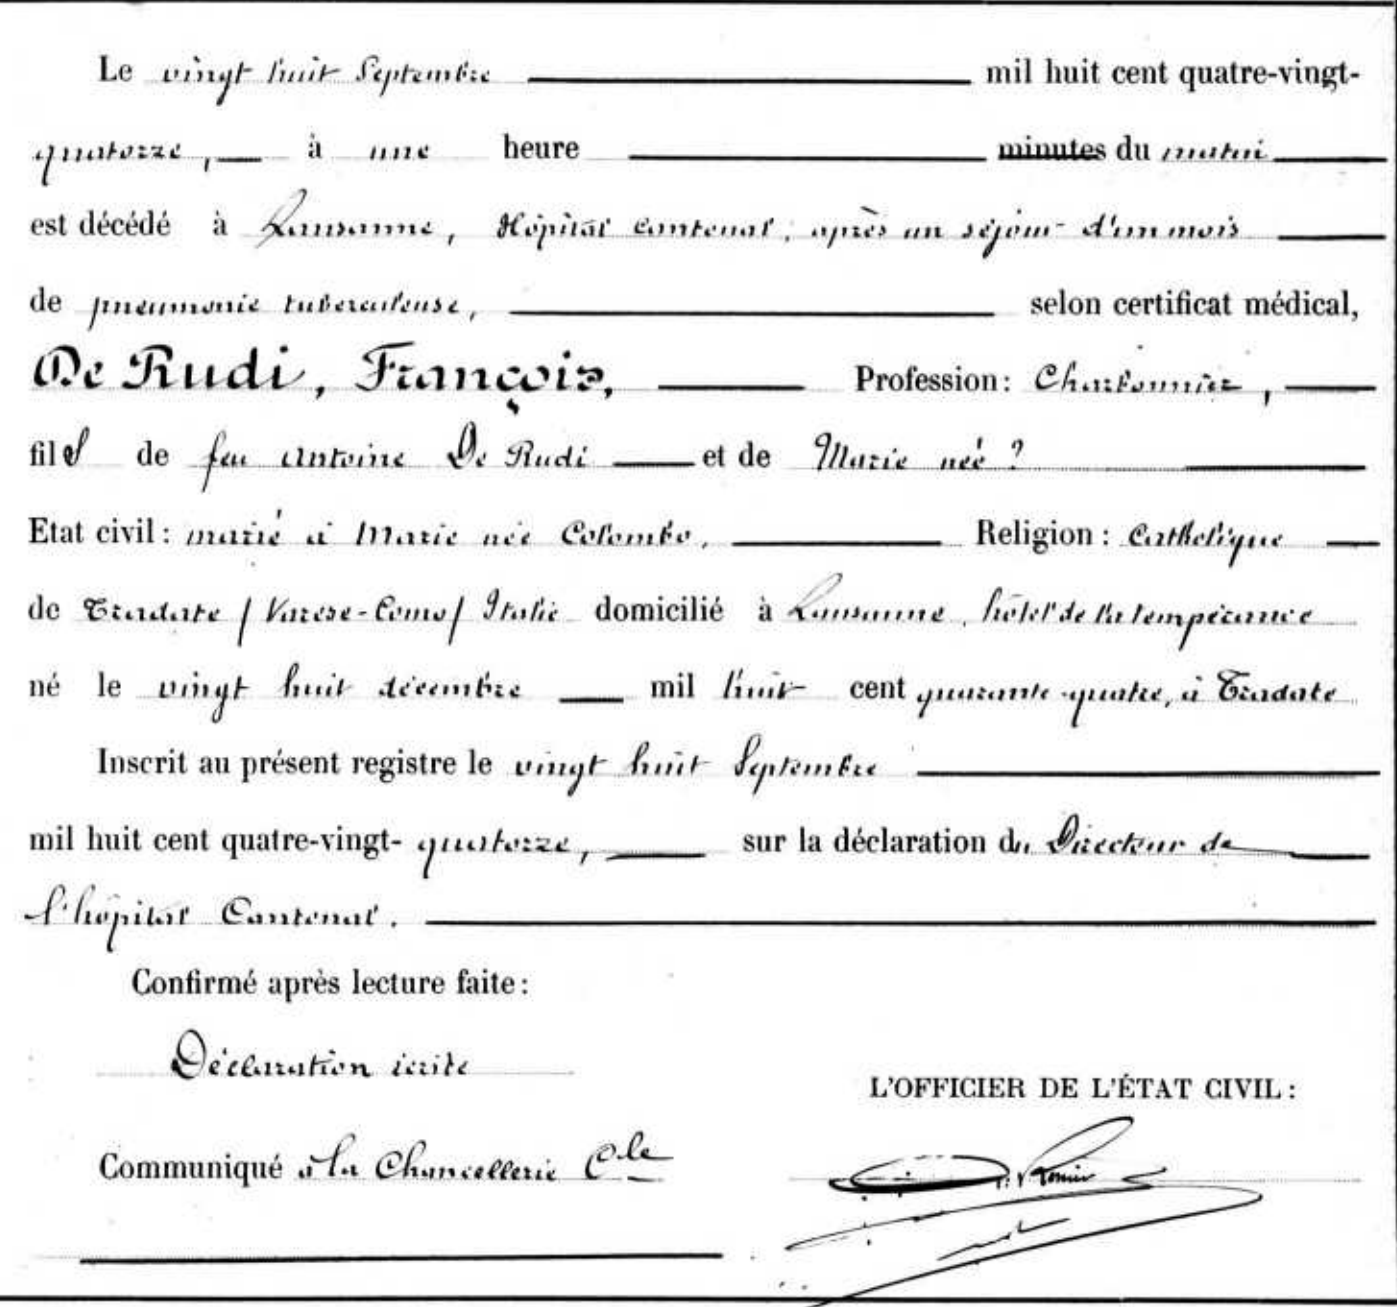 Le vingt huit Septembre mil huit cent quatre-vingt-
quatorze, à une heure minutes du matin
est décédé à Lausanne, Hôpital cantonal, après un séjour d'un mois
de pneumonie tuberculeuse, selon certificat médical,
De Rudi, François, Profession: Charbonnier,
fils de feu Antoine De Rudi et de Marie née ?
Etat civil: marié à Marie née Colombo. Religion: Catholique
de Tradate / Varese-Como / Italie domicilié à Lausanne, hôtel de la tempérance
né le vingt huit décembre mil huit cent quarante-quatre, à Tradate
Inscrit au présent registre le vingt huit Septembre
mil huit cent quatre-vingt- quatorze, sur la déclaration du Directeur de
l'hôpital Cantonal.
Confirmé après lecture faite:
Déclaration écrite
L'OFFICIER DE L'ÉTAT CIVIL:
Communiqué à la Chancellerie Cle